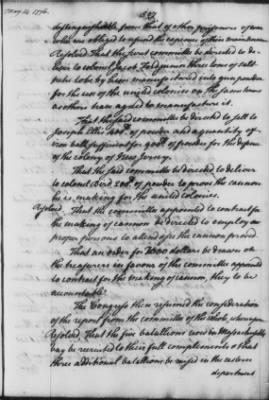 May 14, 1776.
327
distinguishable from that of other prisoners of war
who are obliged to
Resolved That the secret committee be directed to de-
liver to colonel Jacob three tons of salt
petre to be by him manufactured into gun powder
for the use of the united colonies on the same terms
as others have agreed to manufacture it.
That the said committee be directed to sell to
Joseph Ellis 400l. of powder and a quantity of
iron ball sufficient for 400l. of powder for the defence
of the colony of New Jersey.
That the said committee be directed to deliver
to colonel Bird 200l. of powder to prove the cannon
he is making for the united colonies.
Resolved That the committee appointed to contract for
the making of cannon be directed to employ a
proper persons to attend & see the cannon proved
That an order for 2000 dollars be drawn on
the treasurers in favour of the committee appointed
to contract for the making of cannon, they to be
accountable.
The Congress then resumed the consideration
of the report from the committee of the whole, whereupon
Resolved, That the five batallions now in Massachusetts
bay be recruited to their full complement & that
three additional batallions be raised in the eastern
department